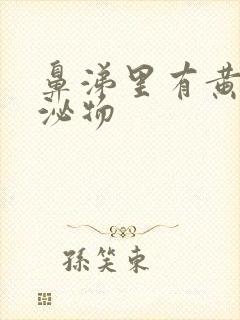 鼻涕里有黄
泌物
孫笑東